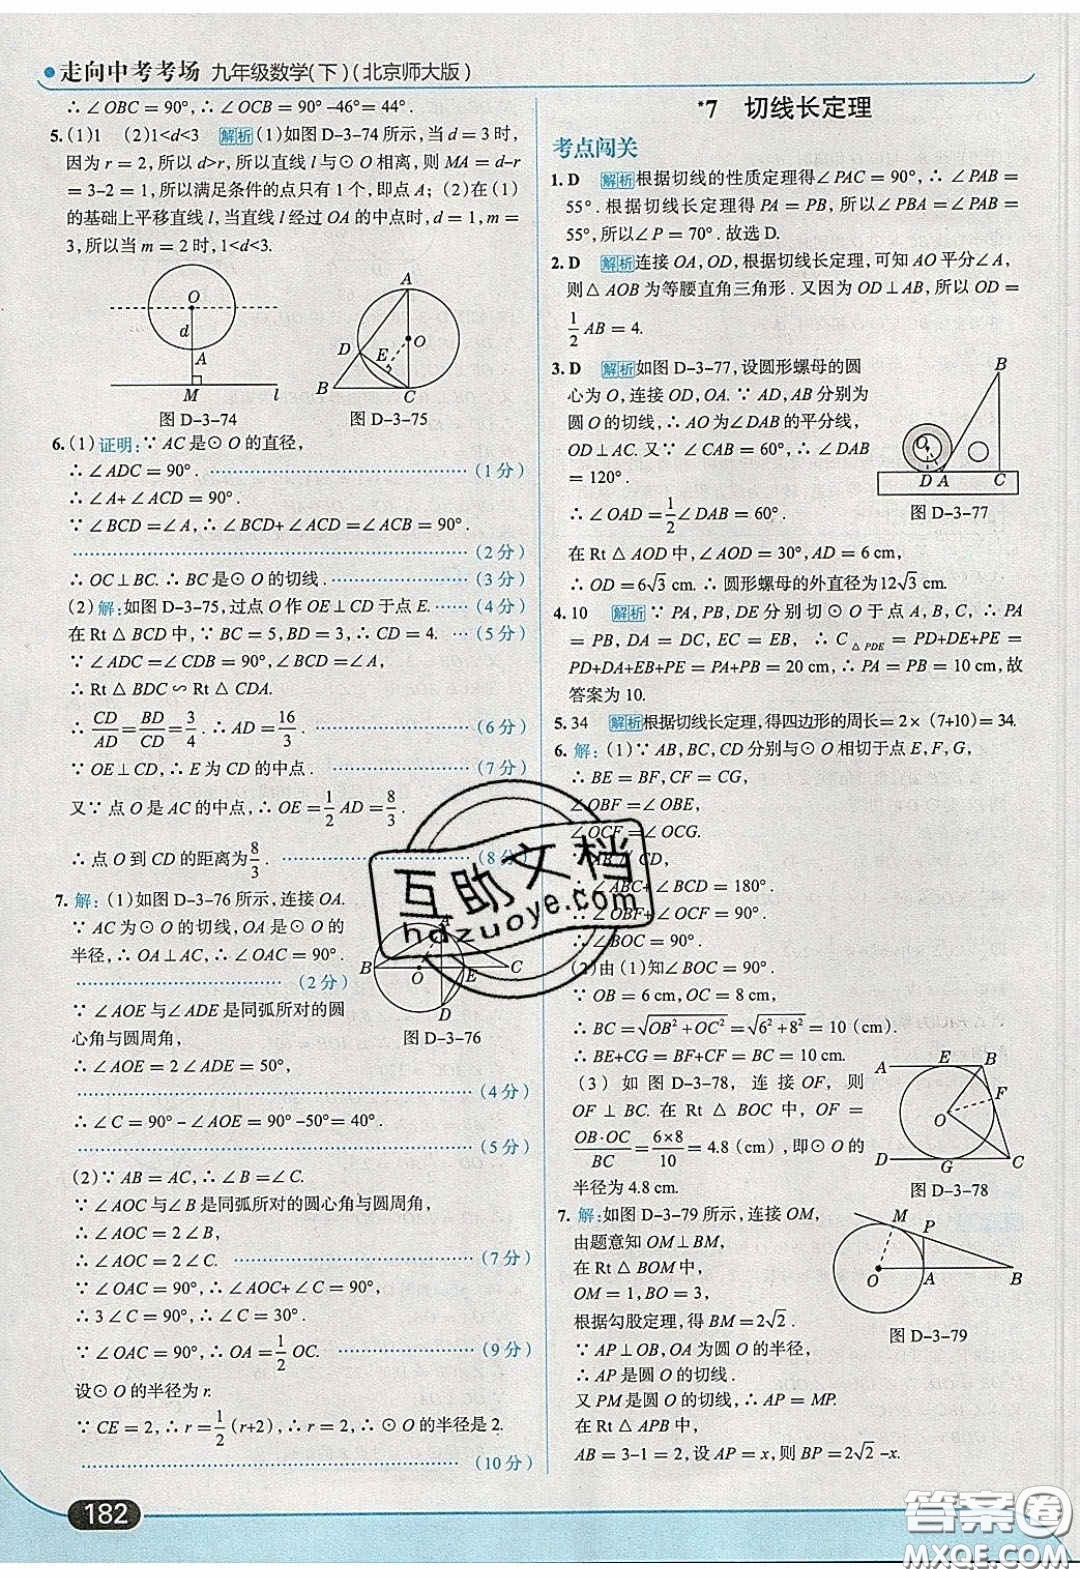 走向中考考场 九年级数学(下)(北京师大版)
∴∠OBC=90°,∴∠OCB=90°-46°=44°.
5.(1)1 (2)1<d<3 解析(1)如图D-3-74所示,当d=3时,
因为r=2,所以d>r,所以直线l与⊙O相离,则MA=d-r
=3-2=1,所以满足条件的点只有1个,即点A;(2)在(1)
的基础上平移直线l,当直线l经过OA的中点时,d=1,m=
3,所以当m=2时,1<d<3.
O
d
A
M
l
图D-3-74
A
D
E
O
B
C
图D-3-75
6.(1)证明:∵AC是⊙O的直径,
∴∠ADC=90°. (1分)
∴∠A+∠ACD=90°.
∵∠BCD=∠A,∴∠BCD+∠ACD=∠ACB=90°.
(2分)
∴OC⊥BC.∴BC是⊙O的切线. (3分)
(2)解:如图D-3-75,过点O作OE⊥CD于点E. (4分)
在Rt△BCD中,∵BC=5,BD=3,∴CD=4. (5分)
∵∠ADC=∠CDB=90°,∠BCD=∠A,
∴Rt△BDC∽Rt△CDA.
∴CD/AD=BD/CD=3/4.∴AD=16/3. (6分)
∵OE⊥CD,∴E为CD的中点. (7分)
又∵点O是AC的中点,∴OE=1/2AD=8/3.
∴点O到CD的距离为8/3. (8分)
7.解:(1)如图D-3-76所示,连接OA.
∵AC为⊙O的切线,OA是⊙O的
半径,∴OA⊥AC,∴∠OAC=90°.
(2分)
∵∠AOE与∠ADE是同弧所对的圆
心角与圆周角,
∴∠AOE=2∠ADE=50°,
(4分)
∴∠C=90°-∠AOE=90°-50°=40°.
(5分)
A
B
O
E
C
D
图D-3-76
(2)∵AB=AC,∴∠B=∠C.
∵∠AOC与∠B是同弧所对的圆心角与圆周角,
∴∠AOC=2∠B,
∴∠AOC=2∠C. (7分)
∵∠OAC=90°,∴∠AOC+∠C=90°,
∴3∠C=90°,∴∠C=30°.
∵∠OAC=90°,∴OA=1/2OC. (9分)
设⊙O的半径为r.
∵CE=2,∴r=1/2(r+2),∴r=2,∴⊙O的半径是2.
(10分)
182
*7 切线长定理
考点闯关
1.D 解析根据切线的性质定理得∠PAC=90°,∴∠PAB=
55°.根据切线长定理得PA=PB,所以∠PBA=∠PAB=
55°,所以∠P=70°.故选D.
2.D 解析连接OA,OD,根据切线长定理,可知AO平分∠A,
则△AOB为等腰直角三角形.又因为OD⊥AB,所以OD=
1/2AB=4.
3.D 解析如图D-3-77,设圆形螺母的圆
心为O,连接OD,OA.∵AD,AB分别为
圆O的切线,∴AO为∠DAB的平分线,
OD⊥AC.又∵∠CAB=60°,∴∠DAB
=120°.
∴∠OAD=1/2∠DAB=60°.
B
O
D
A
C
图D-3-77
在Rt△AOD中,∠AOD=30°,AD=6cm,
∴OD=6√3cm.∴圆形螺母的外直径为12√3cm.
4.10 解析∵PA,PB,DE分别切⊙O于点A,B,C,∴PA
=PB,DA=DC,EC=EB,∴C△PDE=PD+DE+PE=
PD+DA+EB+PE=PA+PB=20cm,∴PA=PB=10cm,故
答案为10.
5.34 解析根据切线长定理,得四边形的周长=2×(7+10)=34.
6.解:(1)∵AB,BC,CD分别与⊙O相切于点E,F,G,
∴BE=BF,CF=CG,
∠OBF=∠OBE,
∠OCF=∠OCG.
∵AB∥CD,
∴∠ABC+∠BCD=180°.
∴∠OBF+∠OCF=90°.
∴∠BOC=90°.
(2)由(1)知∠BOC=90°.
∵OB=6cm,OC=8cm,
∴BC=√(OB²+OC²)=√(6²+8²)=10(cm).
∴BE+CG=BF+CF=BC=10cm.
(3)如图D-3-78,连接OF,则
OF⊥BC.在Rt△BOC中,OF=
OB·OC/BC=6×8/10=4.8(cm),即⊙O的
半径为4.8cm.
A
E
B
F
O
D
G
C
图D-3-78
7.解:如图D-3-79所示,连接OM,
由题意知OM⊥BM,
在Rt△BOM中,
OM=1,BO=3,
根据勾股定理,得BM=2√2.
∵AP⊥OB,OA为圆O的半径,
∴AP是圆O的切线.
又PM是圆O的切线,∴AP=MP.
在Rt△APB中,
AB=3-1=2,设AP=x,则BP=2√2-x.
M
P
O
A
B
图D-3-79
互助文档
hdzuoye.com
答案圈
MXQE.COM